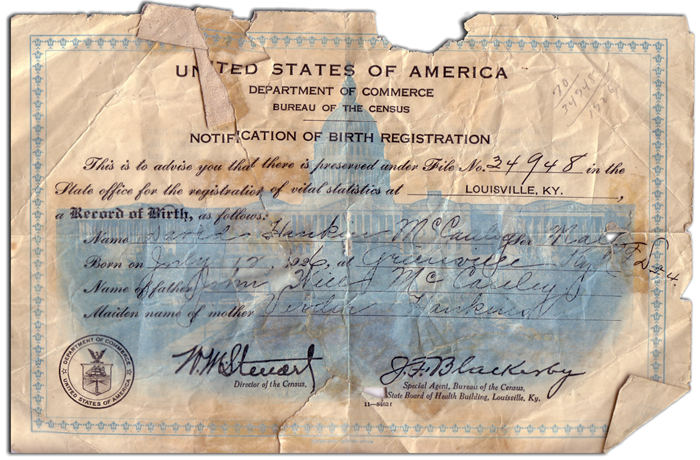 UNITED STATES OF AMERICA
DEPARTMENT OF COMMERCE
BUREAU OF THE CENSUS
NOTIFICATION OF BIRTH REGISTRATION
This is to advise you that there is preserved under File No. 34948 in the
State office for the registration of vital statistics at LOUISVILLE, KY.,
a Record of Birth, as follows:
Name David Hankins McCauley Sex Male
Born on July 12, 1926, at Greenville Ky
Name of father John Will McCauley
Maiden name of mother Hankins
W. M. Steuart
Director of the Census.
J. F. Blackerby
Special Agent, Bureau of the Census,
State Board of Health Building, Louisville, Ky.
DEPARTMENT OF COMMERCE
UNITED STATES OF AMERICA